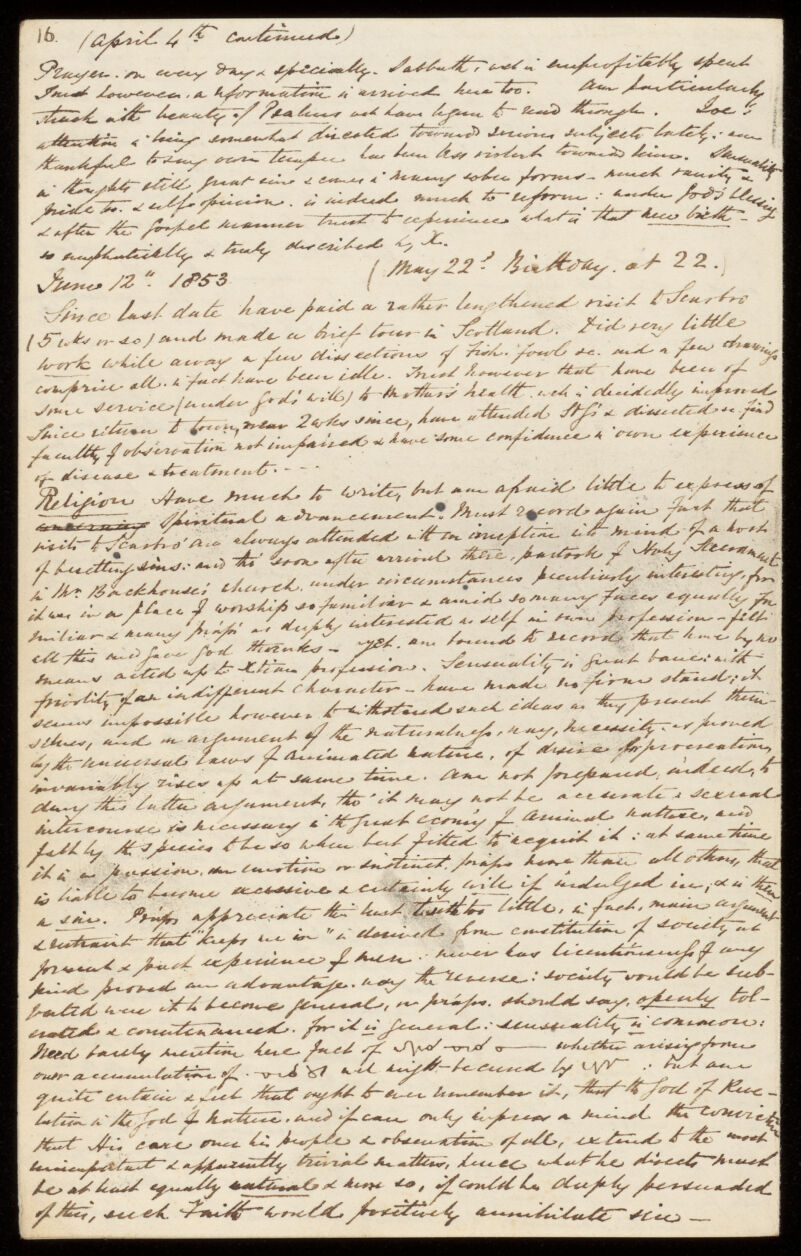 16. (April 4th continued)
Prayer. on every day & specially. Sabbath, wh is unprofitably spent
Trust however, a reformation is arrived here too. Am particularly
struck with beauty of Psalms wh have begun to read through. Joe's
attention is being somewhat directed toward serious subjects lately: am
thankful to say own temper has been less violent toward him. Sensuality
in thoughts still great sin & comes in many forms - much vanity &
pride too. & self opinion. is indeed much to reform: under God's blessing
& after the Gospel manner trust to experience what is that new birth -
so emphatically & truly described by X.
June 12th. 1853 (May 22d. Birthday. at 22.)
Since last date have paid a rather lengthened visit to Scarbro
(5 wks or so) and made a brief tour in Scotland. Did very little
work while away a few dissections of Fish. fowl &c. and a few drawings
comprise all. in fact have been idle. Trust however that have been of
some service (under God's will) to Mother's health wh is decidedly improved
Since return to town, near 2 wks since, have attended St G's & dissected &c. find
faculty of observation not impaired & have some confidence in own experience
of disease & treatment. - - -
Religion Have much to write, but am afraid little to express of
spiritual advancement. Must record again fact that
visits to Scarbro' are always attended with an irruption into mind of a host
of besetting sins: and tho' soon after arrival there, partook of Holy Sacrament
in Mr. Backhouse's church. under circumstances peculiarly interesting, for
it was in a place of worship so familiar & amid so many faces equally fa-
miliar & many praps as deeply interested as self in own profession - felt
all this and gave God thanks - yet. am bound to record that have by no
means acted up to Xtian profession. Sensuality is great bane: with
frivolity of an indifferent character - have made no firm stand: it
seems impossible however to withstand such ideas as they present them-
selves, and an argument of the naturalness, nay, necessity. as proved
by the universal laws of animated nature, of desire for procreation,
invariably rises up at same time. Am not prepared, indeed, to
deny this latter argument, tho' it may not be accurate: sexual
intercourse is necessary in the great economy of animal nature, and
felt by the species to be so when best fitted to acquit it: at same time
it is a passion, an emotion or instinct. praps more than all others, that
is liable to become excessive & certainly will if indulged in, & is then
a sin. Praps appreciate this last truth too little, in fact, main argument
& restraint that "keeps me in" is derived from constitution of society at
present & past experience of men: never has licentiousness of any
kind proved an advantage. nay the reverse: society would be sub-
verted were it to become general, or praps. should say, openly tol-
erated & countenanced. for it is general: sensuality is common:
Need barely mention here fact of whether arising from
over accumulation of wh might be cured by : but am
quite certain & feel that ought to ever remember it, that the God of Reve-
lation is the God of Nature. and if can only impress a mind the conviction
that His care over his people & observation of all, extend to the most
unimportant & apparently trivial matters, hence what he directs must
be at least equally natural & more so, if could be deeply persuaded
of this, such Faith would positively annihilate sin -